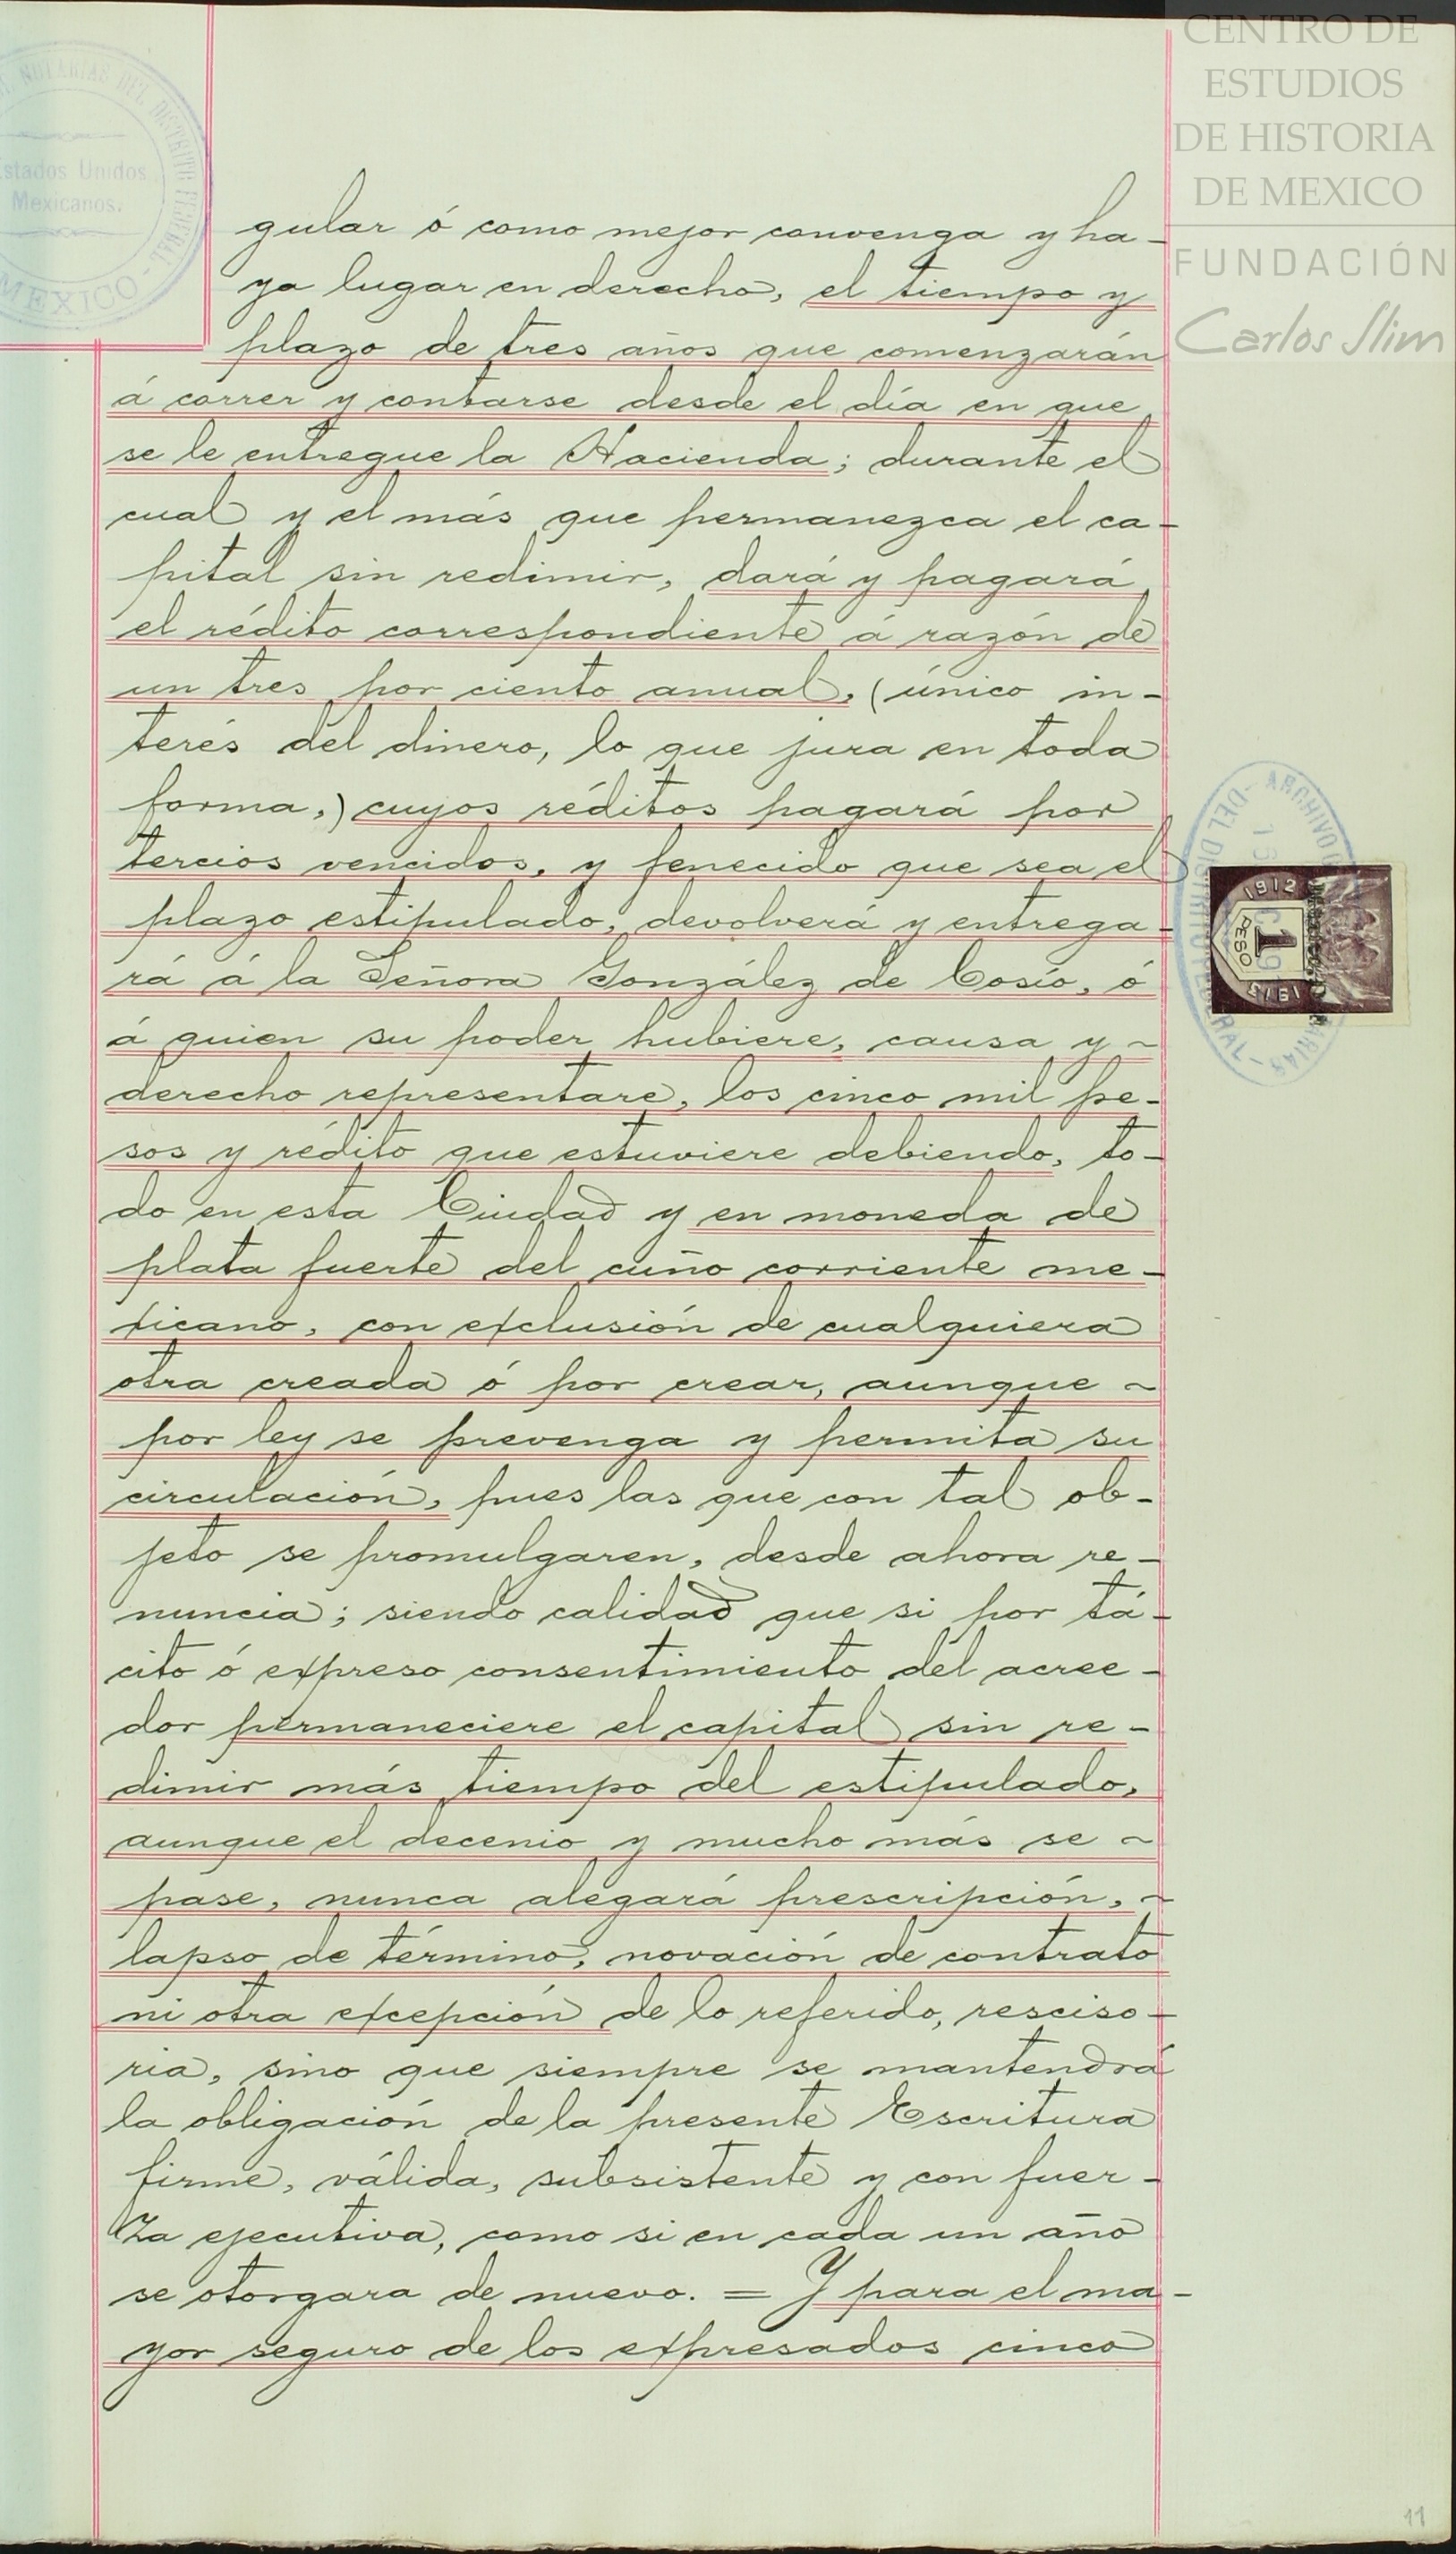 CENTRO DE
ESTUDIOS
DE HISTORIA
DE MEXICO
FUNDACIÓN
Carlos Slim
NOTARIAS DEL DISTRITO FEDERAL
Estados Unidos
Mexicanos.
MEXICO
gular ó como mejor convenga y ha-
ya lugar en derecho, el tiempo y
plazo de tres años que comenzarán
á correr y contarse desde el día en que
se le entregue la Hacienda; durante el
cual y el más que permanezca el ca-
pital sin redimir, dará y pagará
el rédito correspondiente á razón de
un tres por ciento anual, (único in-
terés del dinero, lo que jura en toda
forma,) cuyos réditos pagará por
tercios vencidos, y fenecido que sea el
plazo estipulado, devolverá y entrega-
rá á la Señora González de Cosío, ó
á quien su poder hubiere, causa y ~
derecho representare, los cinco mil pe-
sos y rédito que estuviere debiendo, to-
do en esta Ciudad y en moneda de
plata fuerte del cuño corriente me-
xicano, con exclusión de cualquiera
otra creada ó por crear, aunque ~
por ley se prevenga y permita su
circulación, pues las que con tal ob-
jeto se promulgaren, desde ahora re-
nuncia; siendo calidad que si por tá-
cito ó expreso consentimiento del acree-
dor permaneciere el capital sin re-
dimir más tiempo del estipulado,
aunque el decenio y mucho más se ~
pase, nunca alegará prescripción, ~
lapso de término, novación de contrato
ni otra excepción de lo referido, resciso-
ria, sino que siempre se mantendrá
la obligación de la presente Escritura
firme, válida, subsistente y con fuer-
za ejecutiva, como si en cada un año
se otorgara de nuevo. = Y para el ma-
yor seguro de los expresados cinco
ARCHIVO
DEL DISTRITO FEDERAL
1912
1 PESO
1913
11